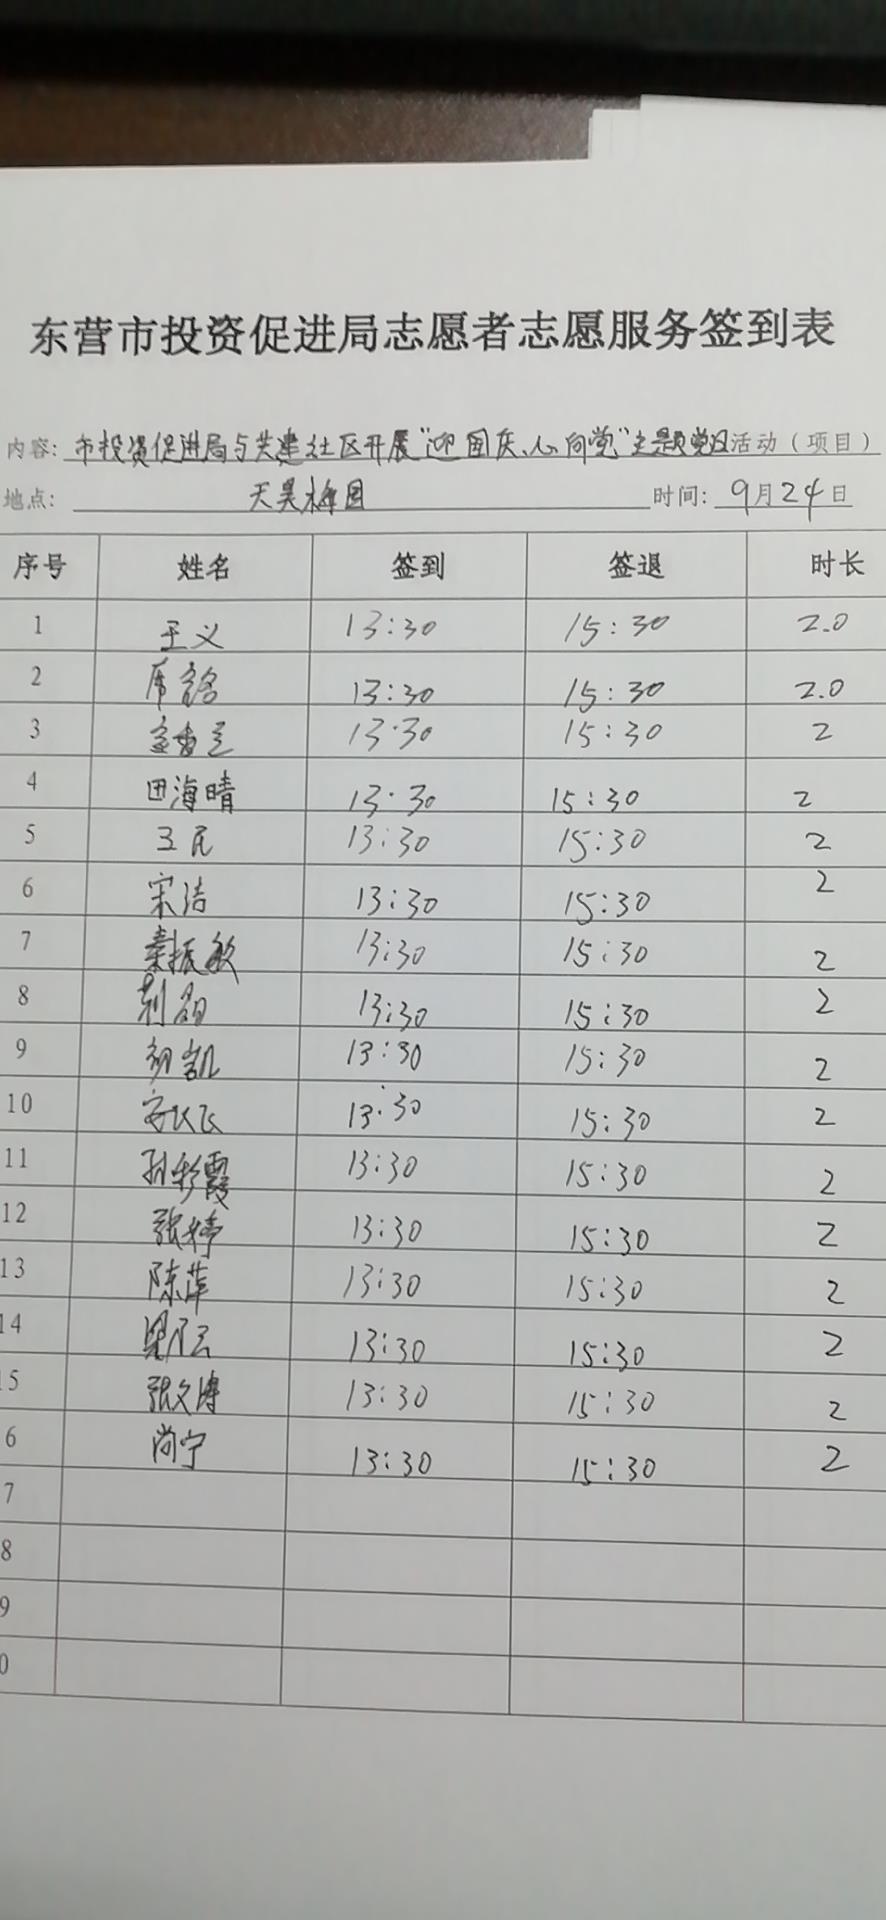 东营市投资促进局志愿者志愿服务签到表
内容: 市投资促进局与共建社区开展"迎国庆、心向党"主题党日活动（项目）
地点: 天昊梅园 时间: 9月24日
序号 姓名 签到 签退 时长
1 王义 13:30 15:30 2.0
2 13:30 15:30 2.0
3 13:30 15:30 2
4 田海晴 13:30 15:30 2
5 王民 13:30 15:30 2
6 宋洁 13:30 15:30 2
7 秦振敏 13:30 15:30 2
8 13:30 15:30 2
9 13:30 15:30 2
10 13:30 15:30 2
11 孙彩霞 13:30 15:30 2
12 张婷 13:30 15:30 2
13 陈萍 13:30 15:30 2
14 13:30 15:30 2
15 张文涛 13:30 15:30 2
6 尚宁 13:30 15:30 2
7
8
9
0